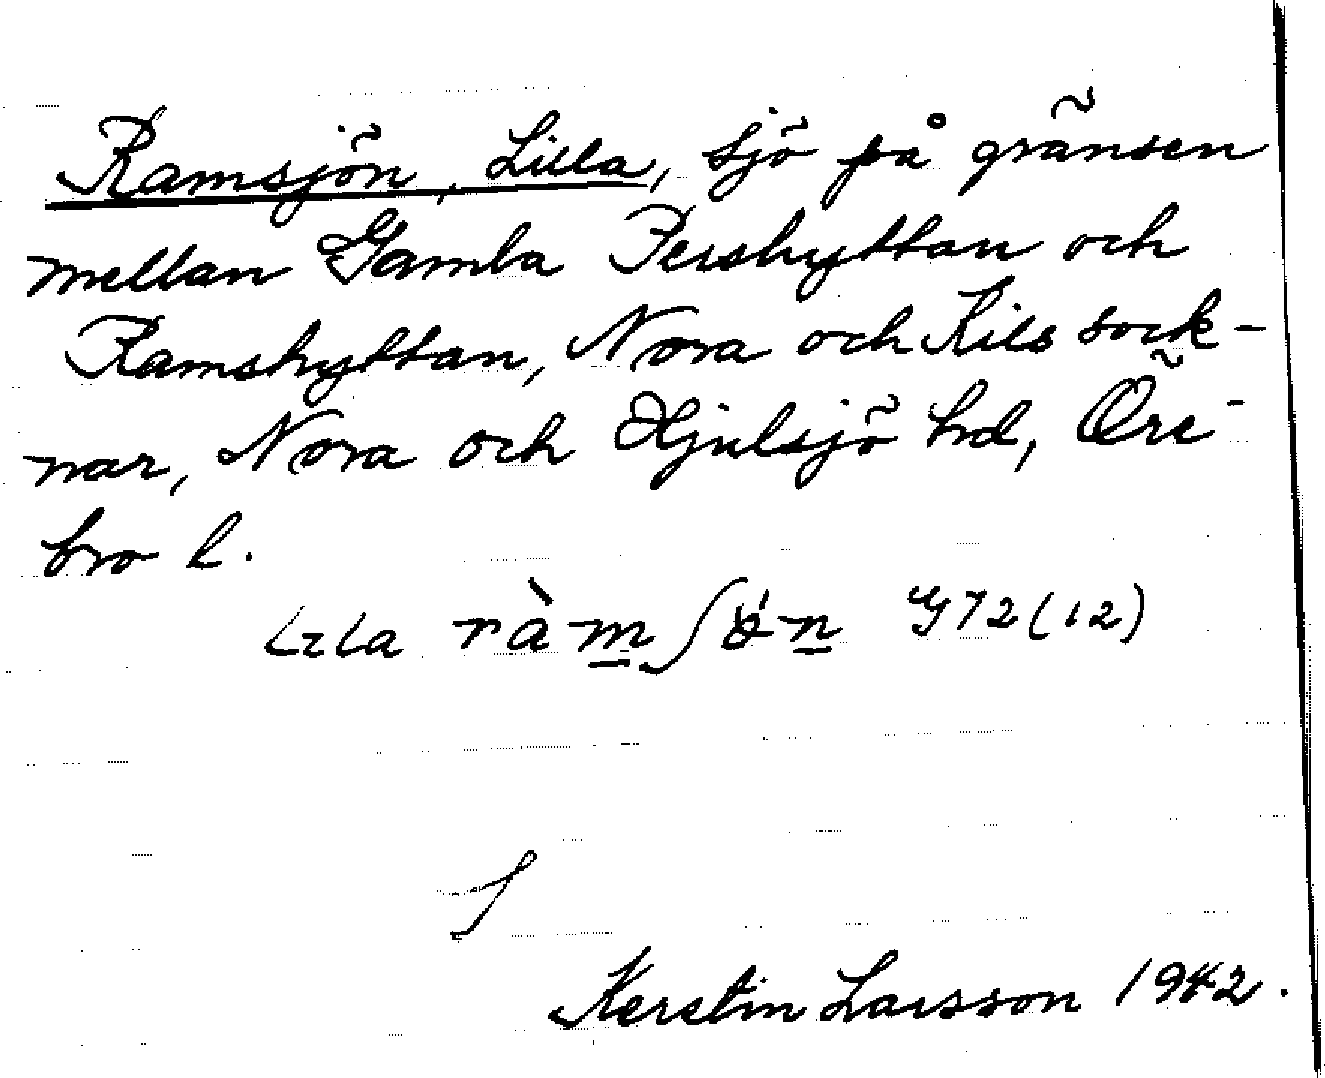 Ramsjön, Lilla, sjö på gränsen
mellan Gamla Pershyttan och
Ramshyttan, Nora och Kils sock-
nar, Nora och Hjulsjö hd, Öre-
bro l.
lɪla ràm̲ʃǿn̲ G72(12)
S
Kerstin Larsson 1942.